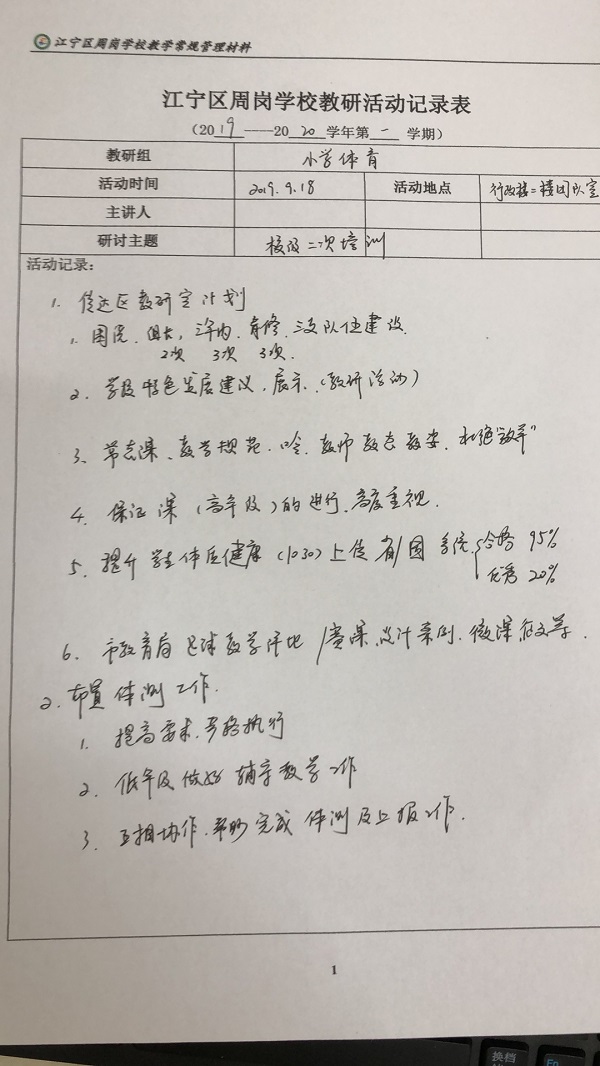 江宁区周岗学校教学常规管理材料
江宁区周岗学校教研活动记录表
（2019——2020学年第一学期）
教研组 小学体育
活动时间 2019.9.18 活动地点 行政楼二楼团队室
主讲人
研讨主题 校级二次培训
活动记录：
1. 传达区教研室计划
1. 周 组长, 研修 队伍建设.
2次 3次 3次.
2. 学校特色发展建议、展示、(教研活动)
3、常态课、教学规范. 教师教态 教案、杜绝
4. 保证课（高年级）的进行、高度重视.
5. 提升学生体质健康（1030）上传省/国系统 合格 95%
优秀 20%
6. 市教育局足球教学 /赛课、设计案例、微课
2. 布置体测工作.
1. 提高要求、严格执行
2. 低年级做好辅导教学工作
3. 互相协作、帮助完成体测及上报工作.
1
换档
Fn